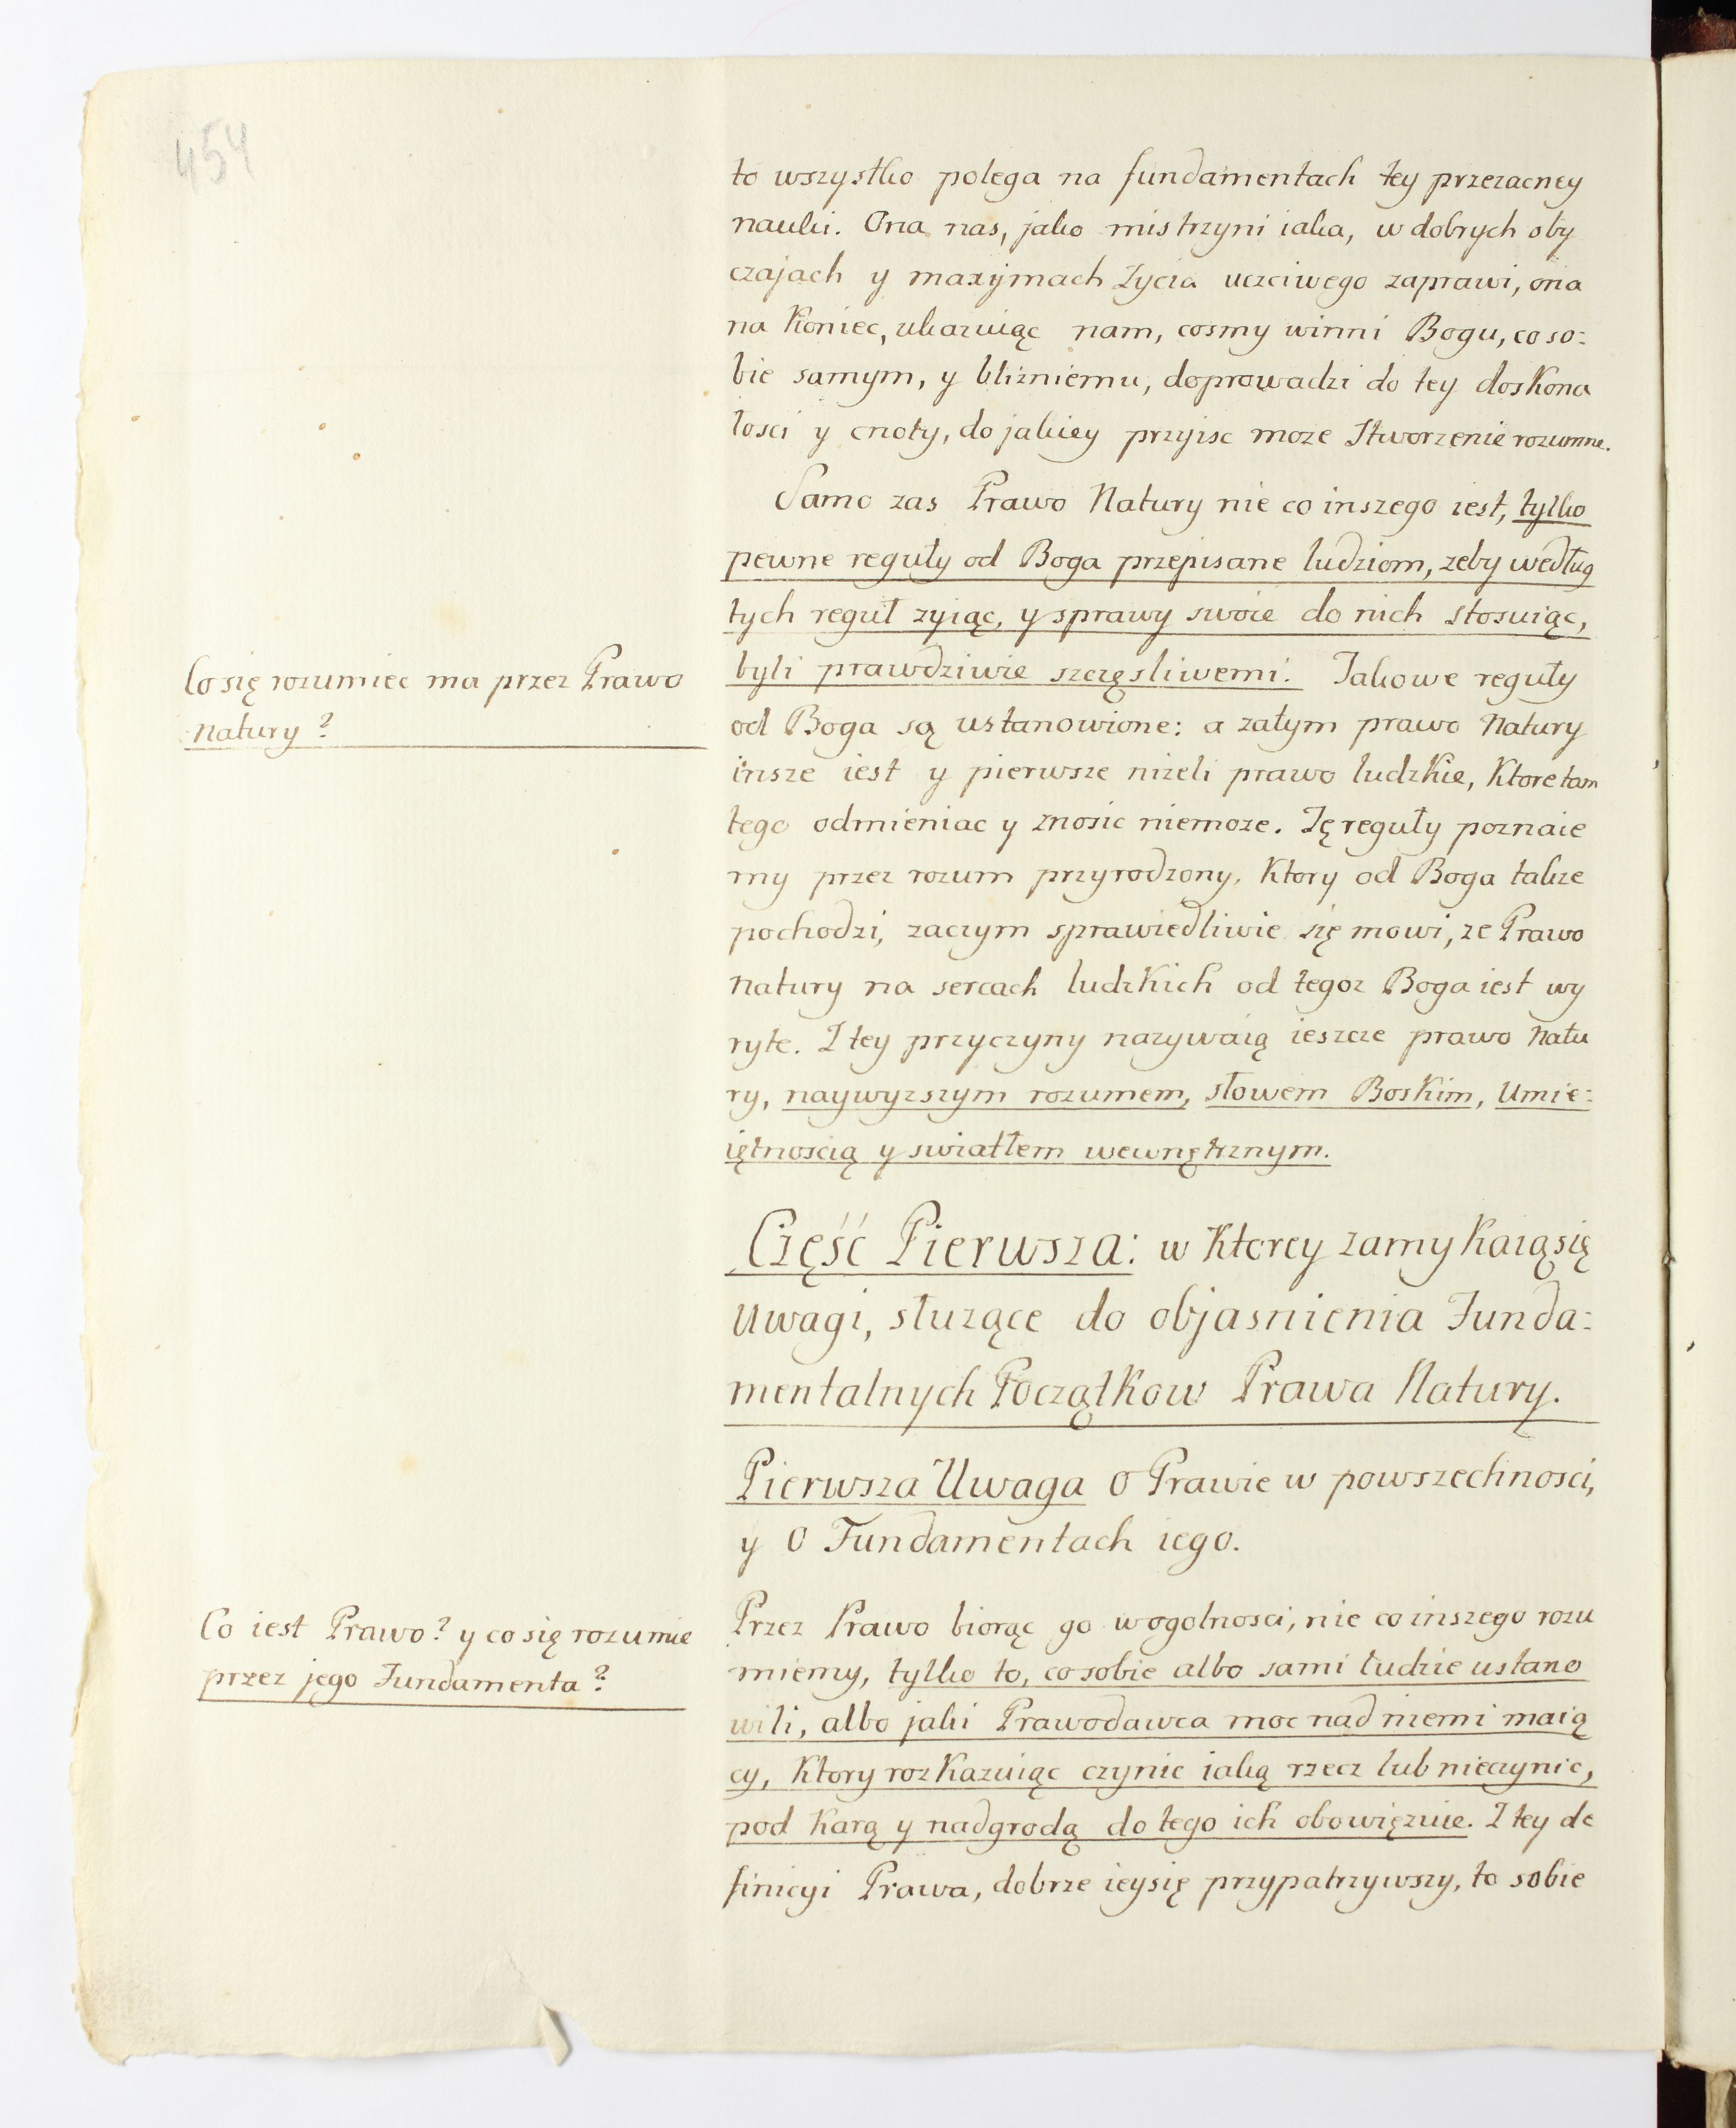 454
to wszystko polega na fundamentach tey przezacney
nauki. Ona nas, jako mistrzyni iaka, w dobrych oby
czajach y maxymach Zycia uczciwego zaprawi, ona
na Koniec, ukazuiąc nam, cosmy winni Bogu, co so:
bie samym, y bliźniemu, doprowadzi do tey doskona
łosci y cnoty, do jakiey przyisc moze Stworzenie rozumne.
Samo zas Prawo Natury nie co inszego iest, tylko
pewne reguły od Boga przepisane ludziom, zeby według
tych reguł zyiąc, y sprawy swoie do nich stosuiąc,
Co się rozumiec ma przez Prawo
Natury?
byli prawdziwie szczęsliwemi. Jakowe reguły
od Boga są ustanowione: a zatym prawo Natury
insze iest y pierwsze nizeli prawo ludzkie, Ktore tam
tego odmieniac y znosic niemoze. Tę reguły poznaie
my przez rozum przyrodzony, Ktory od Boga takze
pochodzi, zaczym sprawiedliwie się mowi, ze Prawo
Natury na sercach ludzkich od tegoz Boga iest wy
ryte. Z tey przyczyny nazywaią ieszcze prawo Natu
ry, naywyzszym rozumem, słowem Boskim, Umie:
iętnoscią y swiatłem wewnętrznym.
Część Pierwsza: w Ktorey zamykaią się
Uwagi, słuzące do objasnienia Funda:
mentalnych Początkow Prawa Natury.
Pierwsza Uwaga O Prawie w powszechnosci,
y O Fundamentach iego.
Co iest Prawo? y co się rozumie
przez jego Fundamenta?
Przez Prawo biorąc go wogolnosci, nie co inszego rozu
miemy, tylko to, co sobie albo sami ludzie ustano
wili, albo jaki Prawodawca moc nad niemi maią
cy, Ktory rozkazuiąc czynic iaką rzecz lub nieczynic,
pod Karą y nadgrodą do tego ich obowięzuie. Z tey de
finicyi Prawa, dobrze iey się przypatrzywszy, to sobie